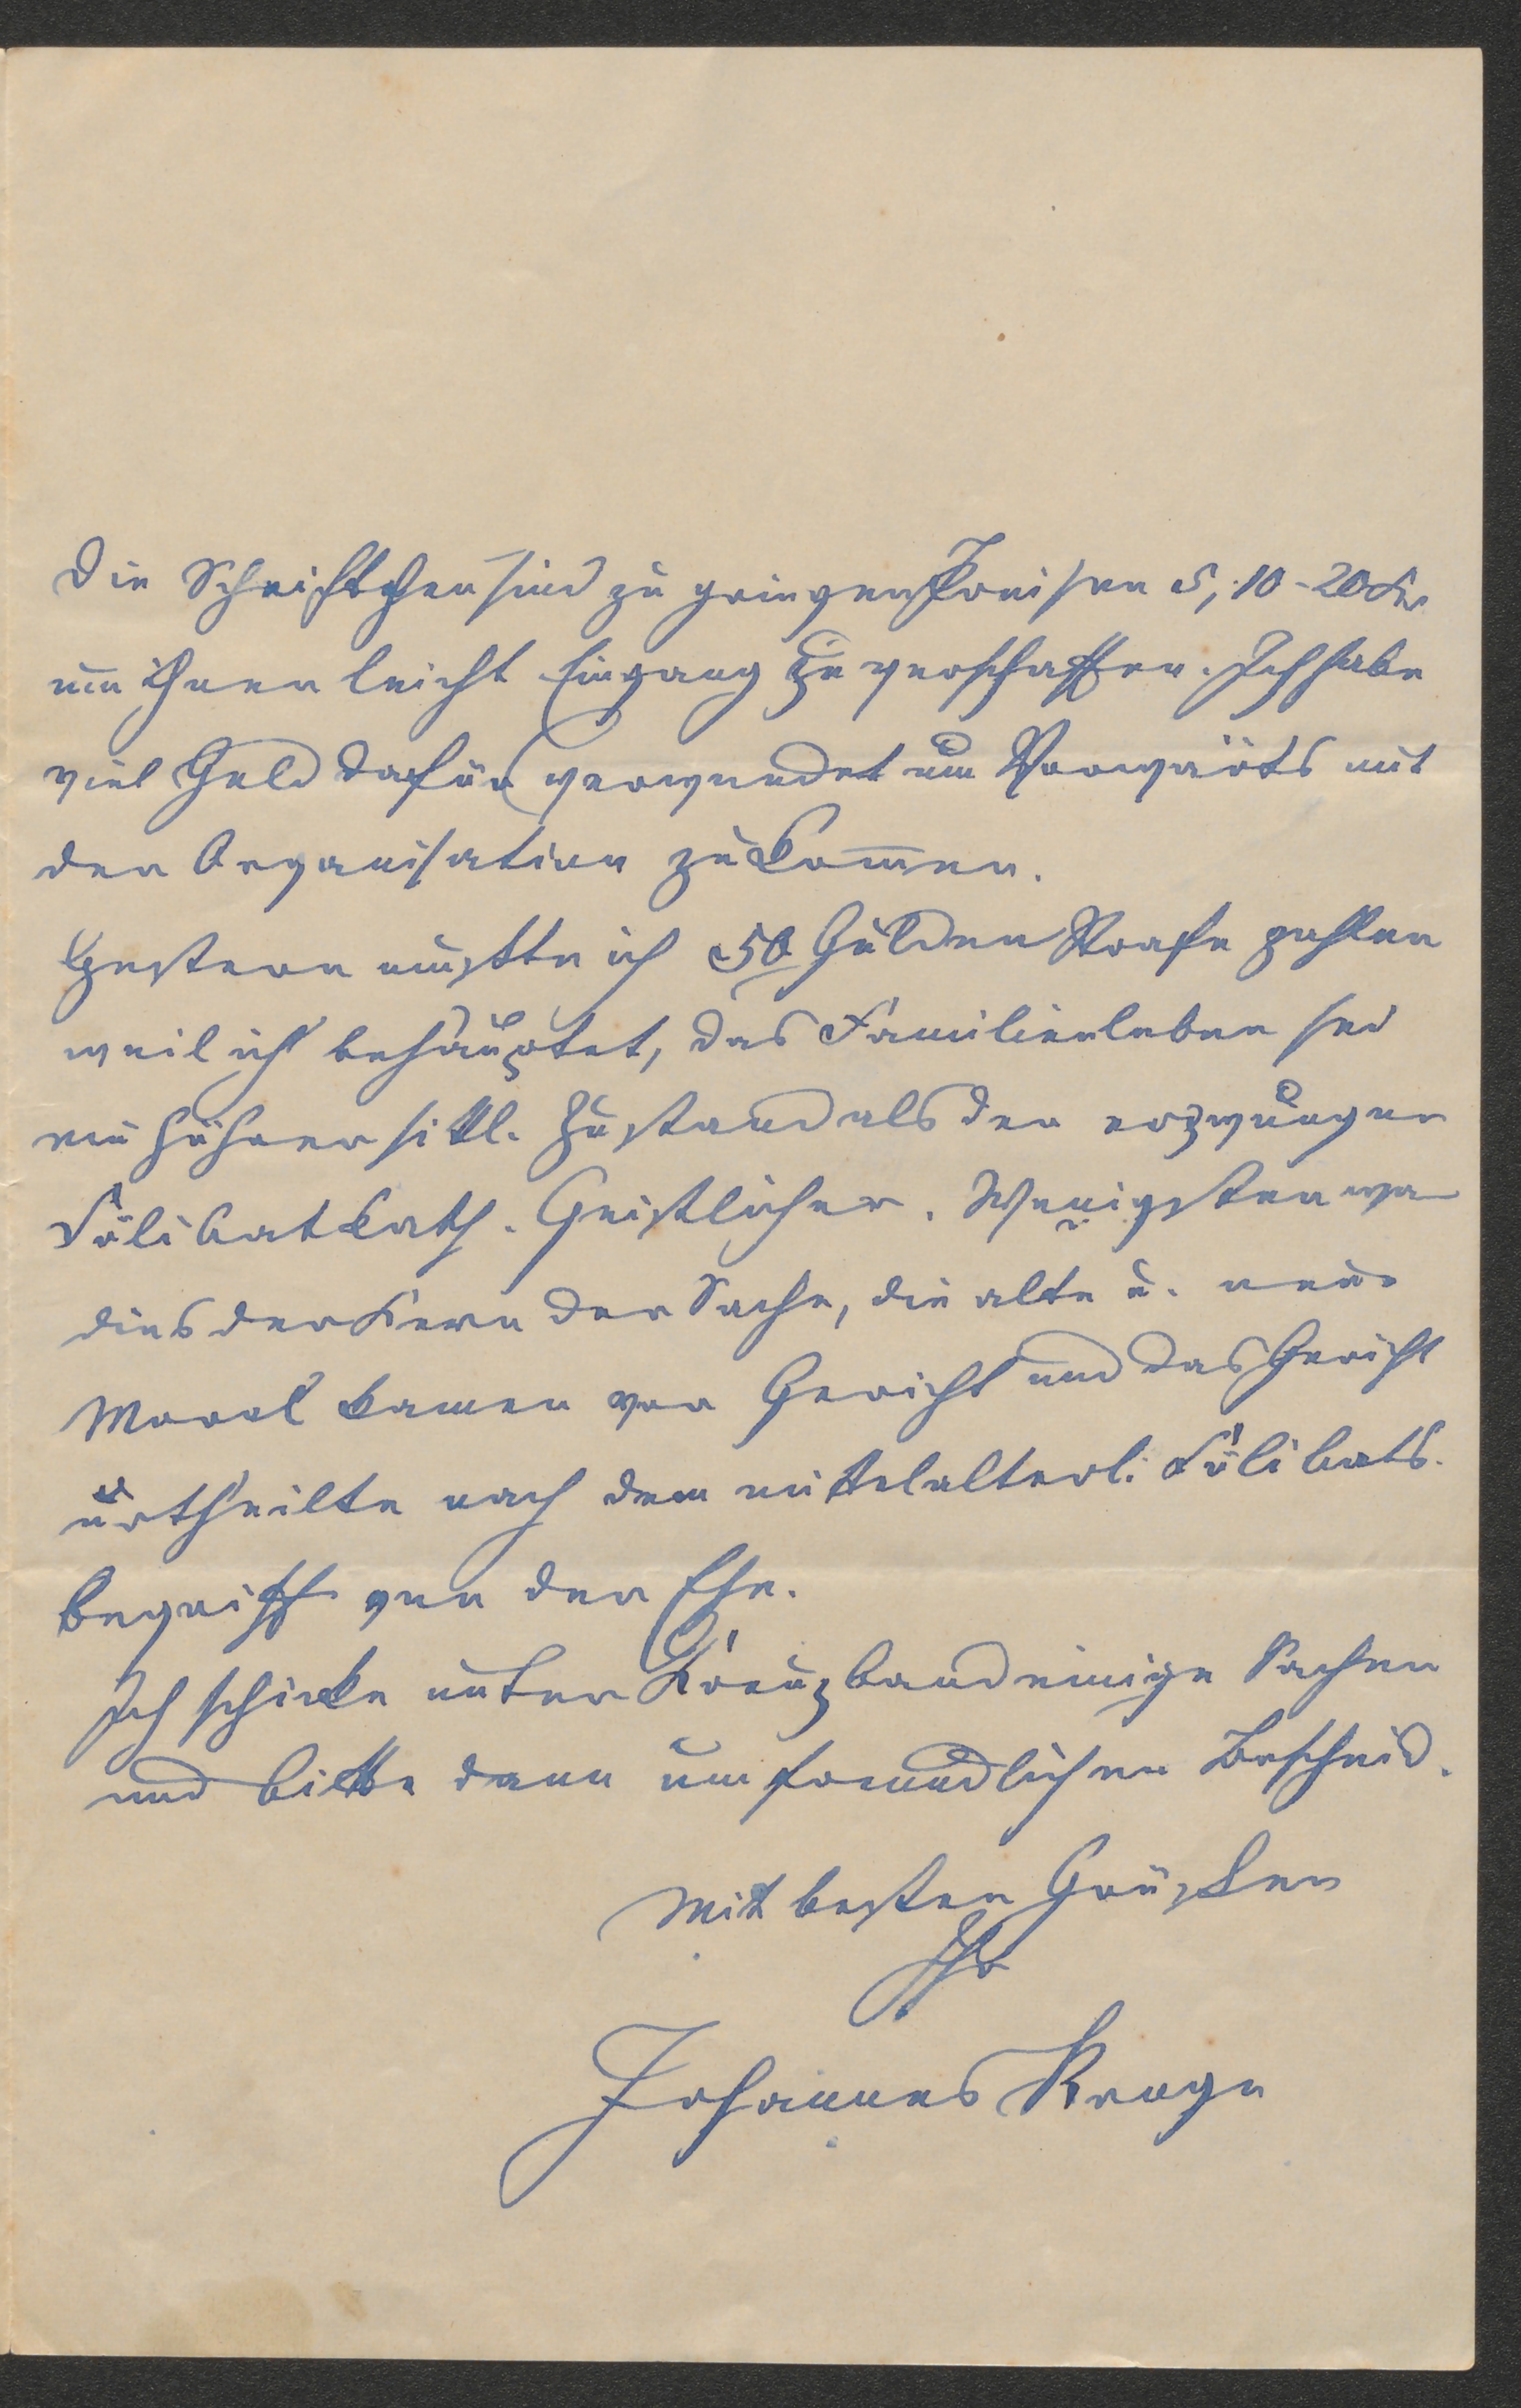 Die Schriftchen sind zu geringen Preisen 5, 10-20 Kr
um ihnen leicht Eingang zu verschaffen. Ich habe
viel Geld dafür verwendet um Vorwärts mit
der Organisation zu kommen.
Gestern mußte ich 50 Gulden Strafe zahlen
weil ich behauptet, das Familienleben sei
ein höherer sittl. Zustand als der erzwungen
Cölibat kath. Geistlicher. Wenigsten war
dies der Kern der Sache, die alte u. neue
Moral kamen vor Gericht und das Gericht
urtheilte nach dem mittelalterl. Cölibats-
begriff von der Ehe.
Ich schicke unter Kreuzband einige Sachen
und bitte dann um freundlichen Bescheid.
Mit besten Grüßen
Ihr
Johannes Ronge